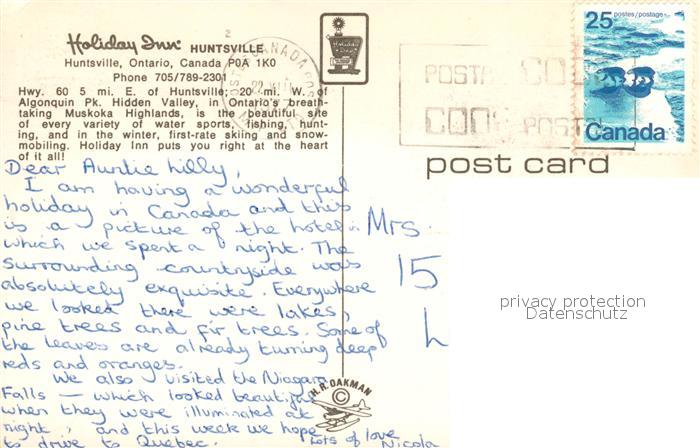 Holiday Inn® HUNTSVILLE
Huntsville, Ontario, Canada P0A 1K0
Phone 705/789-2301
Hwy. 60 5 mi. E. of Huntsville; 20 mi. W. of
Algonquin Pk. Hidden Valley, in Ontario's breath-
taking Muskoka Highlands, is the beautiful site
of every variety of water sports, fishing, hunt-
ing, and in the winter, first-rate skiing and snow-
mobiling. Holiday Inn puts you right at the heart
of it all!
CANADA
POSTA CODE
CODE POSTA
25 postes/postage
Canada
post card
Dear Auntie Lilly,
I am having a wonderful
holiday in Canada and this
is a picture of the hotel in
which we spent a night. The
surrounding countryside was
absolutely exquisite. Everywhere
we looked there were lakes,
pine trees and fir trees. Some of
the leaves are already turning deep
reds and oranges.
We also visited the Niagara
Falls – which looked beautiful
when they were illuminated at
night, and this week we hope
to drive to Quebec.
Lots of love
Nicola
Mrs.
15
L
H.R. OAKMAN
©
privacy protection
Datenschutz